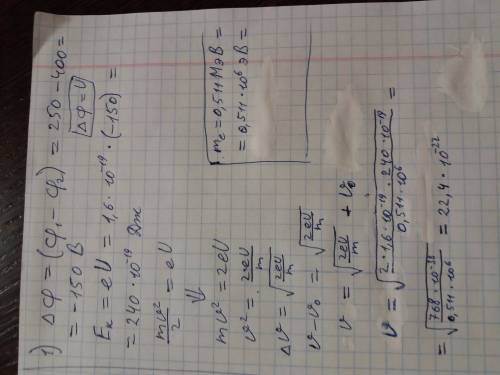 1) Δφ = (φ₁ - φ₂) = 250 - 400 =
= -150 В
Δφ = U
Eₖ = eU = 1,6 · 10⁻¹⁹ · (-150) =
= 240 · 10⁻¹⁹ Дж
mv²/2 = eU
⇓
mv² = 2eU
v² = 2eU/m
Δv = √(2eU/m)
v - v₀ = √(2eU/m)
v = √(2eU/m) + v₀
mₑ = 0,511 МэВ =
= 0,511 · 10⁶ эВ =
v = √(2 · 1,6 · 10⁻¹⁹ · 240 · 10⁻¹⁹ / 0,511 · 10⁶) =
= √(768 · 10⁻³⁸ / 0,511 · 10⁶) = 22,4 · 10⁻²²